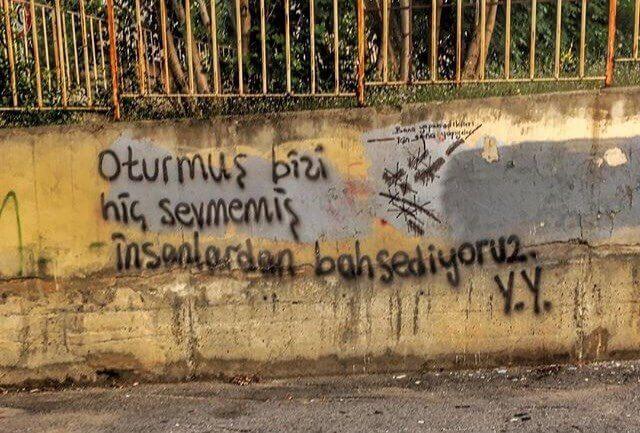 Oturmuş bizi
hiç sevmemiş
insanlardan bahsediyoruz.
Y.Y.